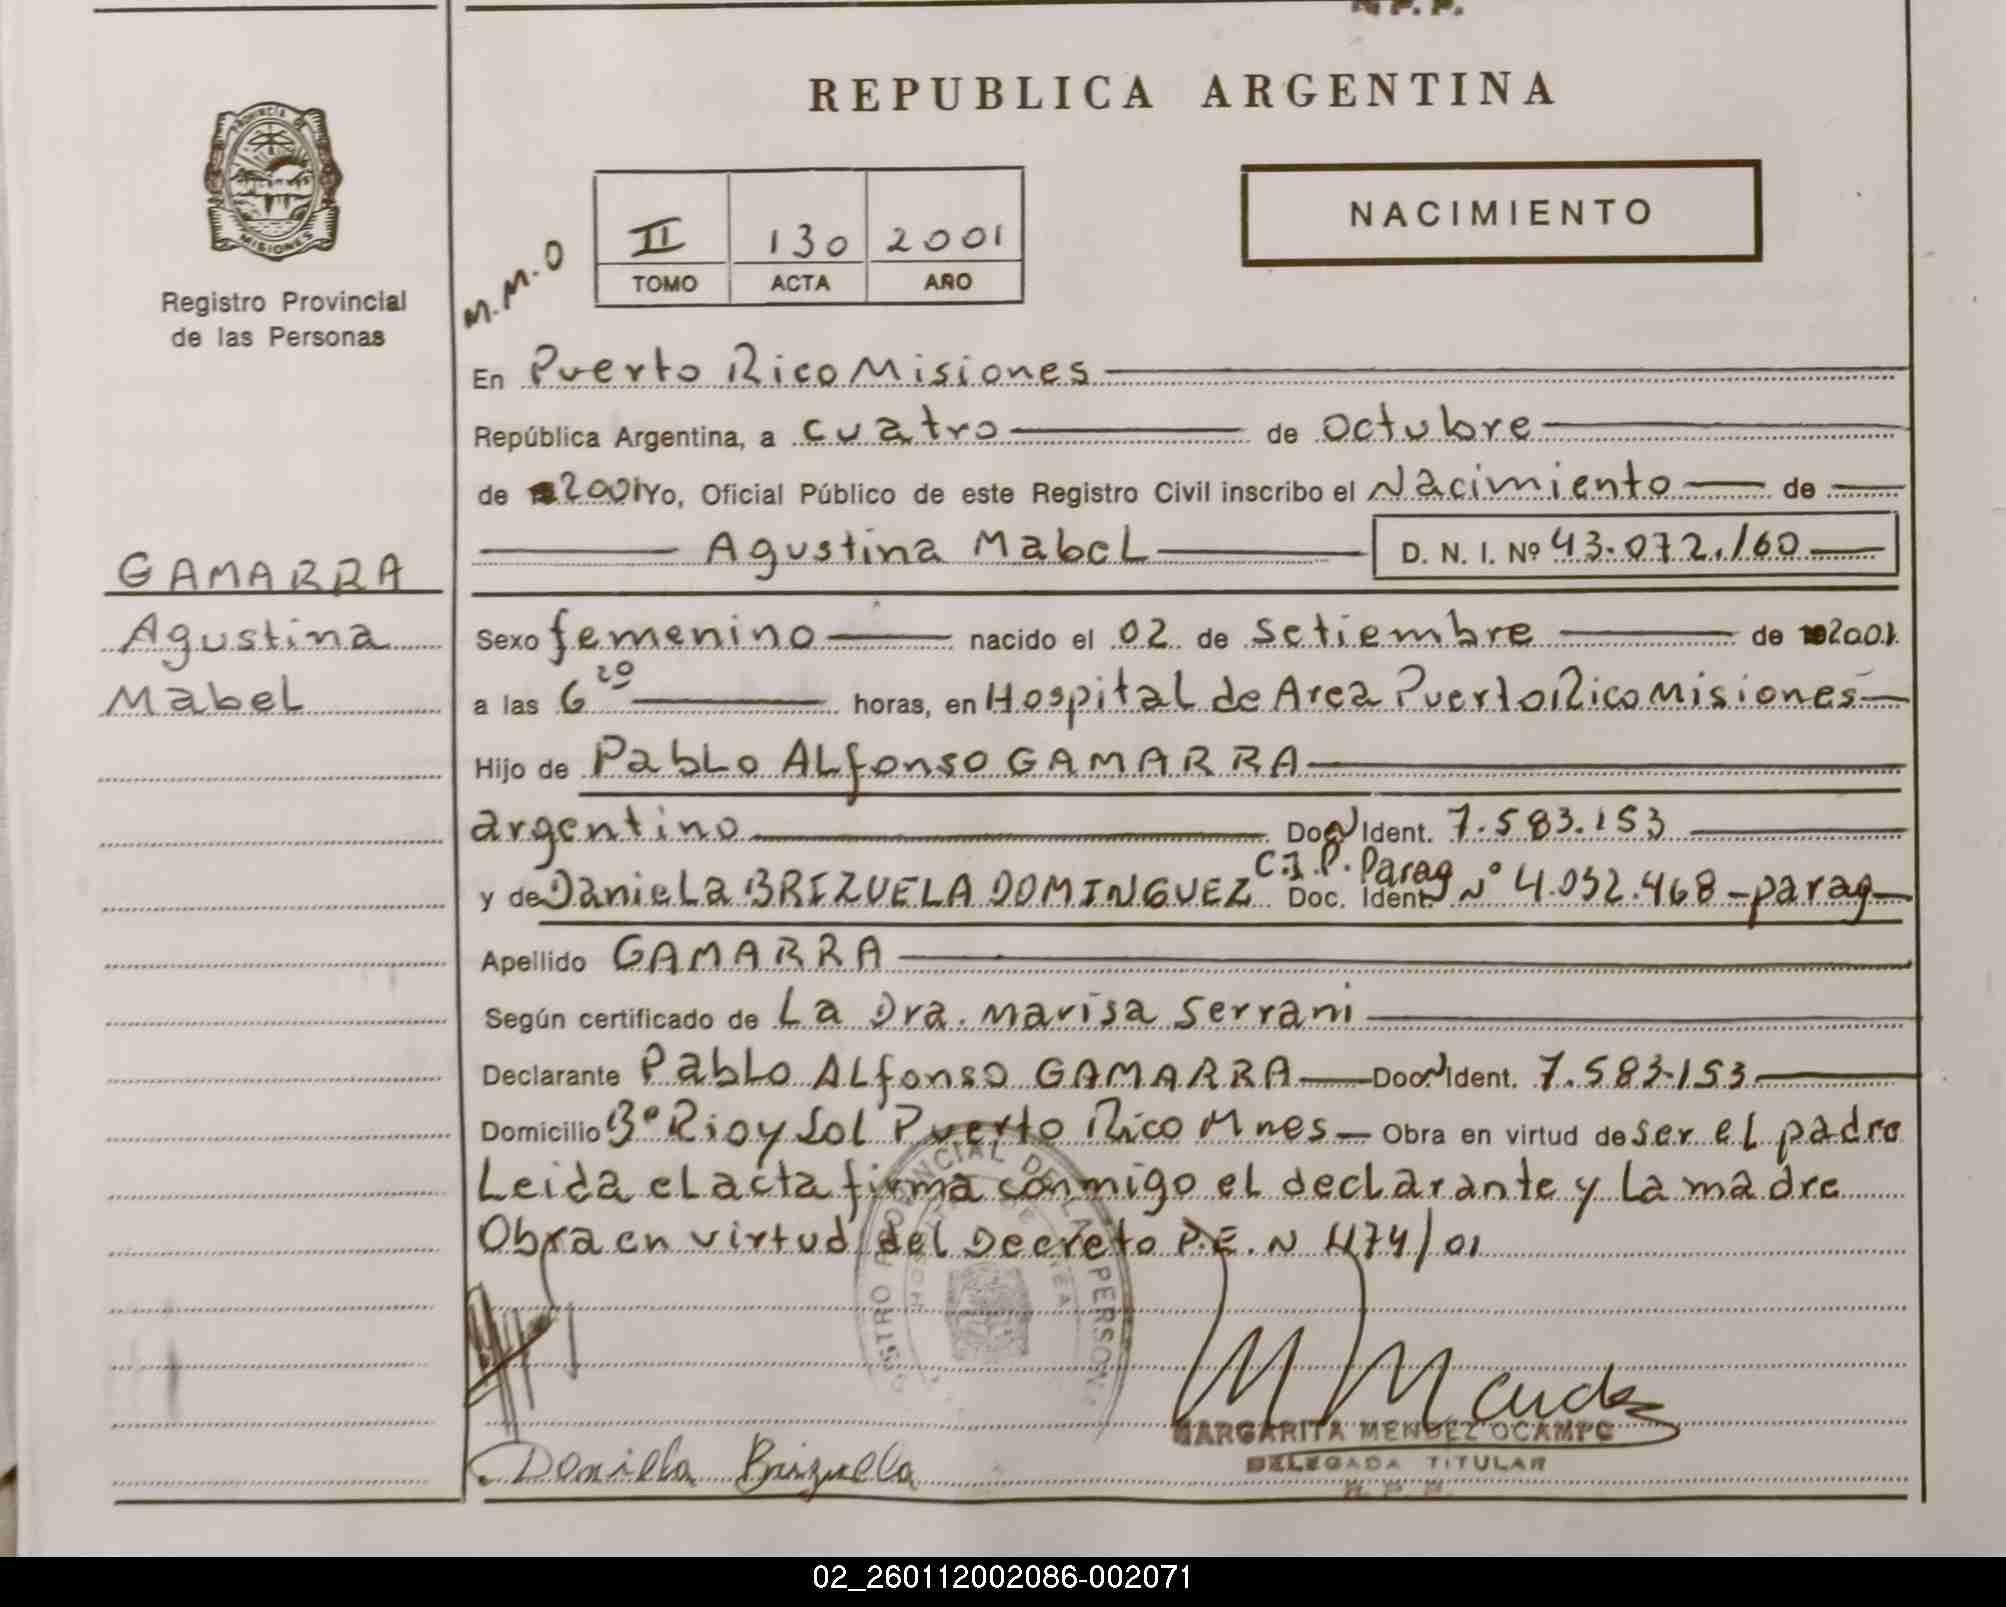 REPUBLICA ARGENTINA
PROVINCIA DE
MISIONES
Registro Provincial
de las Personas
M.M.O
II 130 2001
TOMO ACTA AÑO
NACIMIENTO
En Puerto Rico Misiones
República Argentina, a cuatro de Octubre
de 2001 Yo, Oficial Público de este Registro Civil inscribo el Nacimiento de
Agustina Mabel D. N. I. Nº 43.072.160
GAMARRA
Agustina
Mabel
Sexo femenino nacido el 02 de Setiembre de 2001.
a las 6 20 horas, en Hospital de Area Puerto Rico Misiones
Hijo de Pablo Alfonso GAMARRA
argentino Ident. 7.583.153
y de Daniela BRIZUELA DOMINGUEZ C.I.P. Parag Doc. Ident. Nº 4.052.468 - parag
Apellido GAMARRA
Según certificado de La Dra. Marisa Serrani
Declarante Pablo Alfonso GAMARRA Ident. 7.583.153
Domicilio Bº Rio y Sol Puerto Rico Mnes Obra en virtud de ser el padre
Leida el acta firma conmigo el declarante y la madre
Obra en virtud del Decreto P.E. N 1174/01
Daniela Brizuela
MARGARITA MENDEZ OCAMPO
DELEGADA TITULAR
02_260112002086-002071